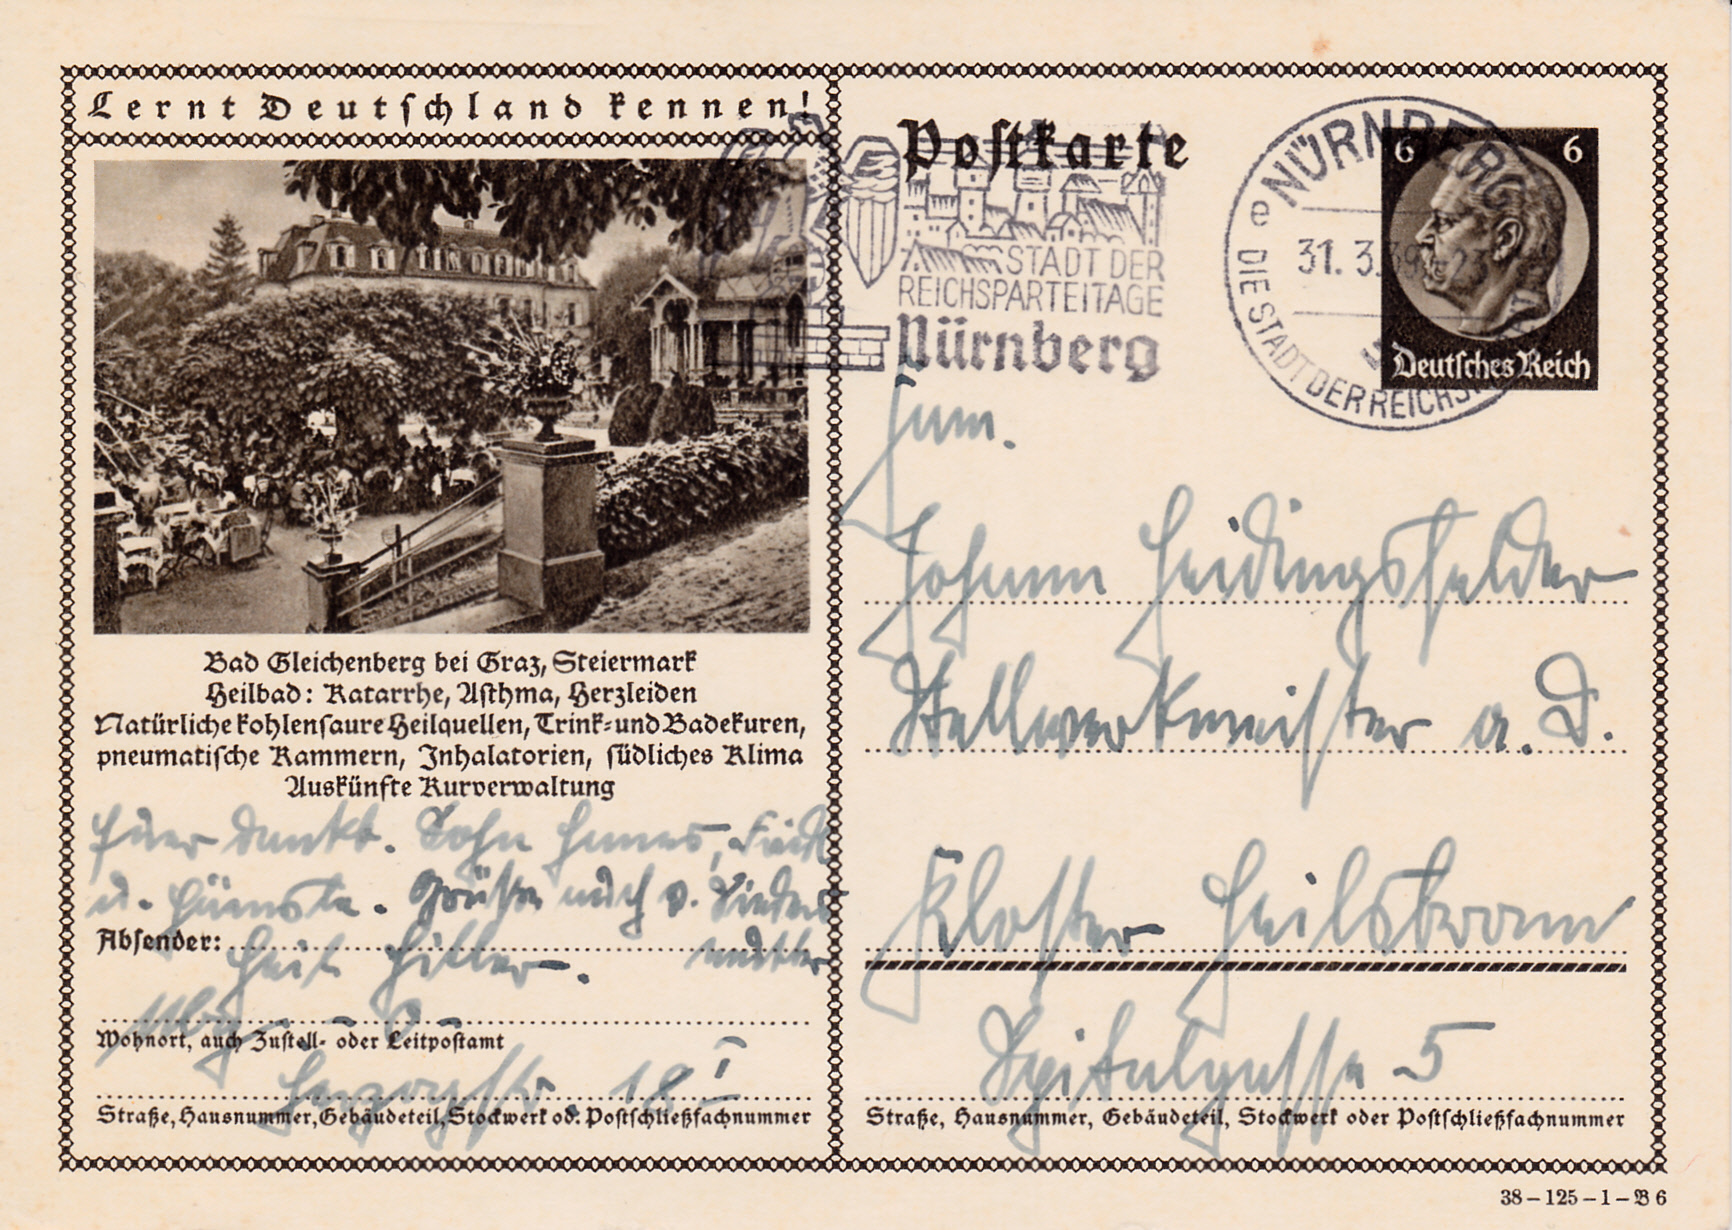 Lernt Deutschland kennen!
Bad Gleichenberg bei Graz, Steiermark
Heilbad: Katarrhe, Asthma, Herzleiden
Natürliche kohlensaure Heilquellen, Trink- und Badekuren,
pneumatische Kammern, Inhalatorien, südliches Klima
Auskünfte Kurverwaltung
Euer dankb. Sohn Hannes, Friedl
u. Hannele. Grüße auch v. Lieders
Absender:
mutter
Heil Hitler.
Nbg
Wohnort, auch Zustell- oder Leitpostamt
Herzogstr. 18 I
Straße, Hausnummer, Gebäudeteil, Stockwerk od. Postschließfachnummer
Postkarte
STADT DER
REICHSPARTEITAGE
Nürnberg
NÜRNBERG
31.3.39
DIE STADT DER REICHS
6 6
Deutsches Reich
Herrn.
Johann Heidingsfelder
Stellwerkmeister a. D.
Kloster Heilsbronn
Spitalgasse 5
Straße, Hausnummer, Gebäudeteil, Stockwerk oder Postschließfachnummer
38 – 125 – 1 – B 6